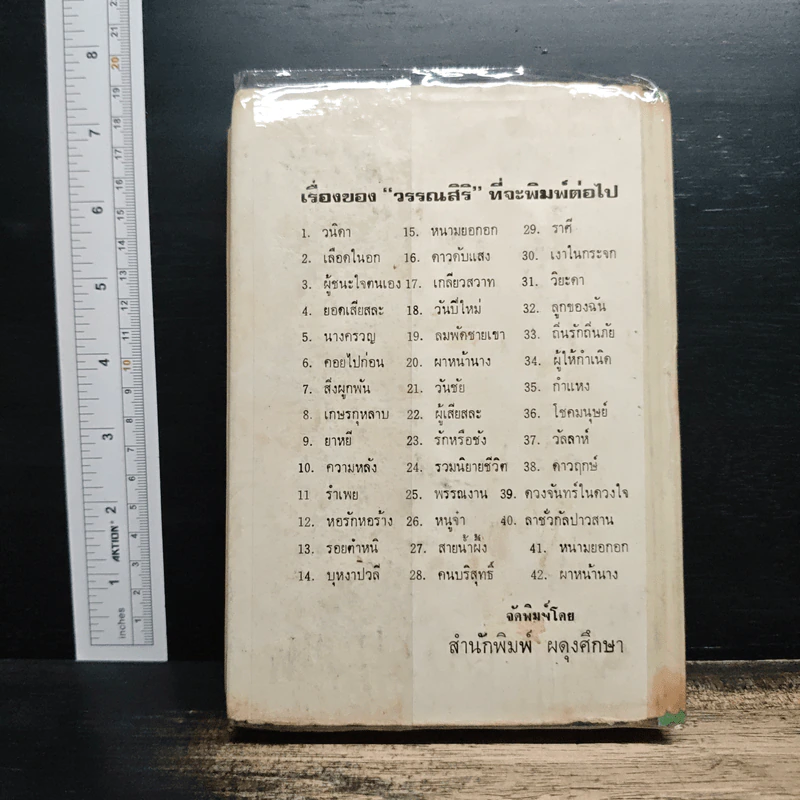 เรื่องของ “วรรณสิริ” ที่จะพิมพ์ต่อไป
1. วนิดา 15. หนามยอกอก 29. ราศี
2. เลือดในอก 16. ดาวดับแสง 30. เงาในกระจก
3. ผู้ชนะใจตนเอง 17. เกลียวสวาท 31. วิยะดา
4. ยอดเสียสละ 18. วันปีใหม่ 32. ลูกของฉัน
5. นางครวญ 19. ลมพัดชายเขา 33. ถิ่นรักถิ่นภัย
6. คอยไปก่อน 20. ผาหน้านาง 34. ผู้ให้กำเนิด
7. สิ่งผูกพัน 21. วันชัย 35. กำแหง
8. เกษรกุหลาบ 22. ผู้เสียสละ 36. โชคมนุษย์
9. ยาหยี 23. รักหรือชัง 37. วัลลาห์
10. ความหลัง 24. รวมนิยายชีวิต 38. ดาวฤกษ์
11 รำเพย 25. พรรณงาน 39. ดวงจันทร์ในดวงใจ
12. หอรักหอร้าง 26. หนูจ๋า 40. ลาชั่วกัลปาวสาน
13. รอยตำหนิ 27. สายน้ำผึ้ง 41. หนามยอกอก
14. บุหงาปัวลี 28. คนบริสุทธิ์ 42. ผาหน้านาง
จัดพิมพ์โดย
สำนักพิมพ์ ผดุงศึกษา
inches
AKTION
1
2
3
4
5
6
7
8
10
11
12
13
14
15
16
17
18
19
20
21